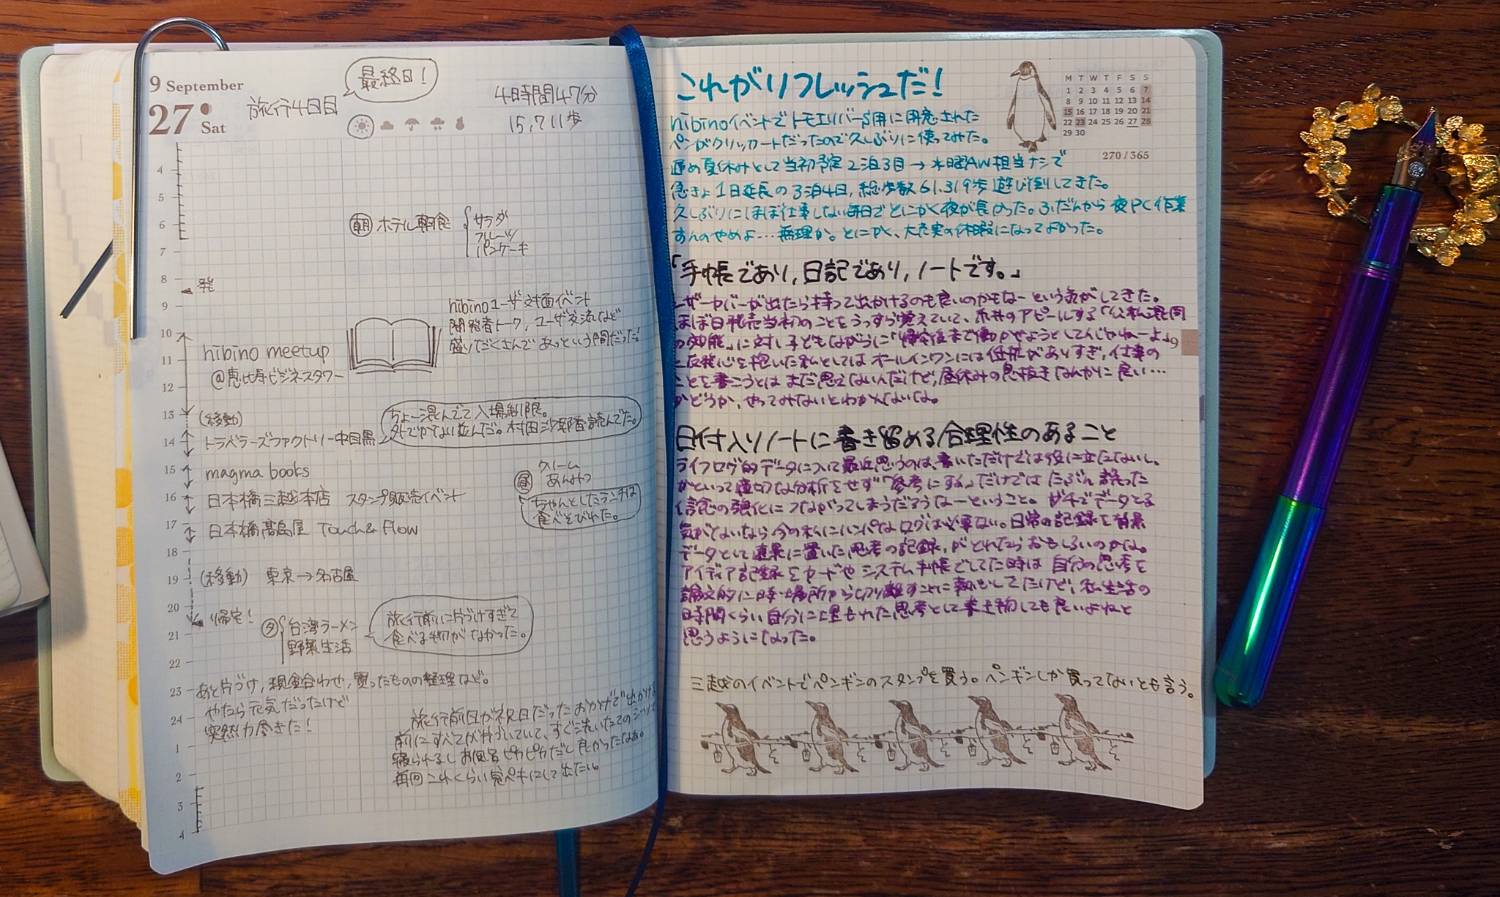 9 September
27 Sat
旅行4日目
最終日!
4時間47分
15,711歩
4
5
6
7
8
9
10
11
12
13
14
15
16
17
18
19
20
21
22
23
24
1
2
3
4
朝 ホテル朝食
サラダ
フルーツ
パンケーキ
発
hibino meetup
@恵比寿ビジネスタワー
hibinoユーザ対面イベント
開発者トーク,ユーザ交流など
盛りだくさんであっという間だった!
(移動)
トラベラーズファクトリー中目黒
ちょー混んでて入場制限。
外でかなり並んだ。村田沙耶香読んでた。
magma books
日本橋三越本店 スタンプ販売イベント
日本橋髙島屋 Touch & Flow
昼
クリーム
あんみつ
ちゃんとしたランチは
食べそびれた。
(移動) 東京→名古屋
帰宅!
夕
台湾ラーメン
野菜生活
旅行前に片づけすぎて
食べる物がなかった。
あと片づけ,現金合わせ,買ったものの整理など。
やたら元気だったけど
突然力尽きた!
旅行前日が祝日だったおかげで出かける
前にすべてが片づいていて,すぐ洗いたてのシーツで
寝られるしお風呂ピカピカだし良かったなあ。
毎回これくらい完ペキにして出たい。
これがリフレッシュだ!
hibinoイベントでトモエリバーS用に用意された
ペンがクリッカートだったので久しぶりに使ってみた。
遅め夏休みとして当初予定2泊3日→木曜AW担当ナシで
急きょ1日延長の3泊4日,総歩数61,319歩遊び倒してきた。
久しぶりにほぼ仕事しない毎日でとにかく夜が長かった。ふだんから夜PC作業
すんのやめよ…無理か。とにかく,大充実の休暇になってよかった。
M T W T F S S
1 2 3 4 5 6 7
8 9 10 11 12 13 14
15 16 17 18 19 20 21
22 23 24 25 26 27 28
29 30
270 / 365
「手帳であり,日記であり,ノートです。」
ーザーカバーが出たら持って出かけるのも良いのかもなーという気がしてきた。
ほぼ日発売当初のことをうっすら覚えていて,糸井のアピールする「公私混同
の効能」に対し子どもながらに「帰宅後まで働かせようとしてんじゃねーよ」の
反発心を抱いた私としてはオールインワンには偏見がありすぎ,仕事の
ことを書こうとはまだ思えないんだけど,昼休みの息抜きなんかに良い…
かどうか,やってみないとわかんないな。
日付入りノートに書き留める合理性のあること
ライフログ的データについて最近思うのは,書いただけでは役に立たないし,
かといって適切な分析をせず「参考にする」だけではたぶん誤った
信念の強化につながってしまうだろうなーということ。ガチでデータとる
気がないなら今の私にハンパなログは必要ない。日常の記録を背景
データとして適景に置いた思考の記録,がとれたらおもしろいのかな。
アイディア記録をカードやシステム手帳でしてた時は自分の思考を
論文的に時・場所から切り離すことに熱心してたけど,私生活の
時間くらい自分に埋もれた思考として書き物しても良いよねと
思うようになった。
三越のイベントでペンギンのスタンプを買う。ペンギンしか買ってないとも言う。